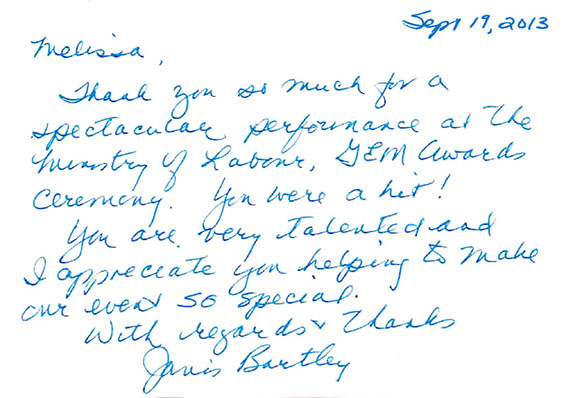 Sept 19, 2013
Melissa,
Thank you so much for a
spectacular performance at the
Ministry of Labour, GEM Awards
Ceremony. You were a hit!
You are very talented and
I appreciate you helping to make
our event so special.
With regards & thanks
Janis Bartley